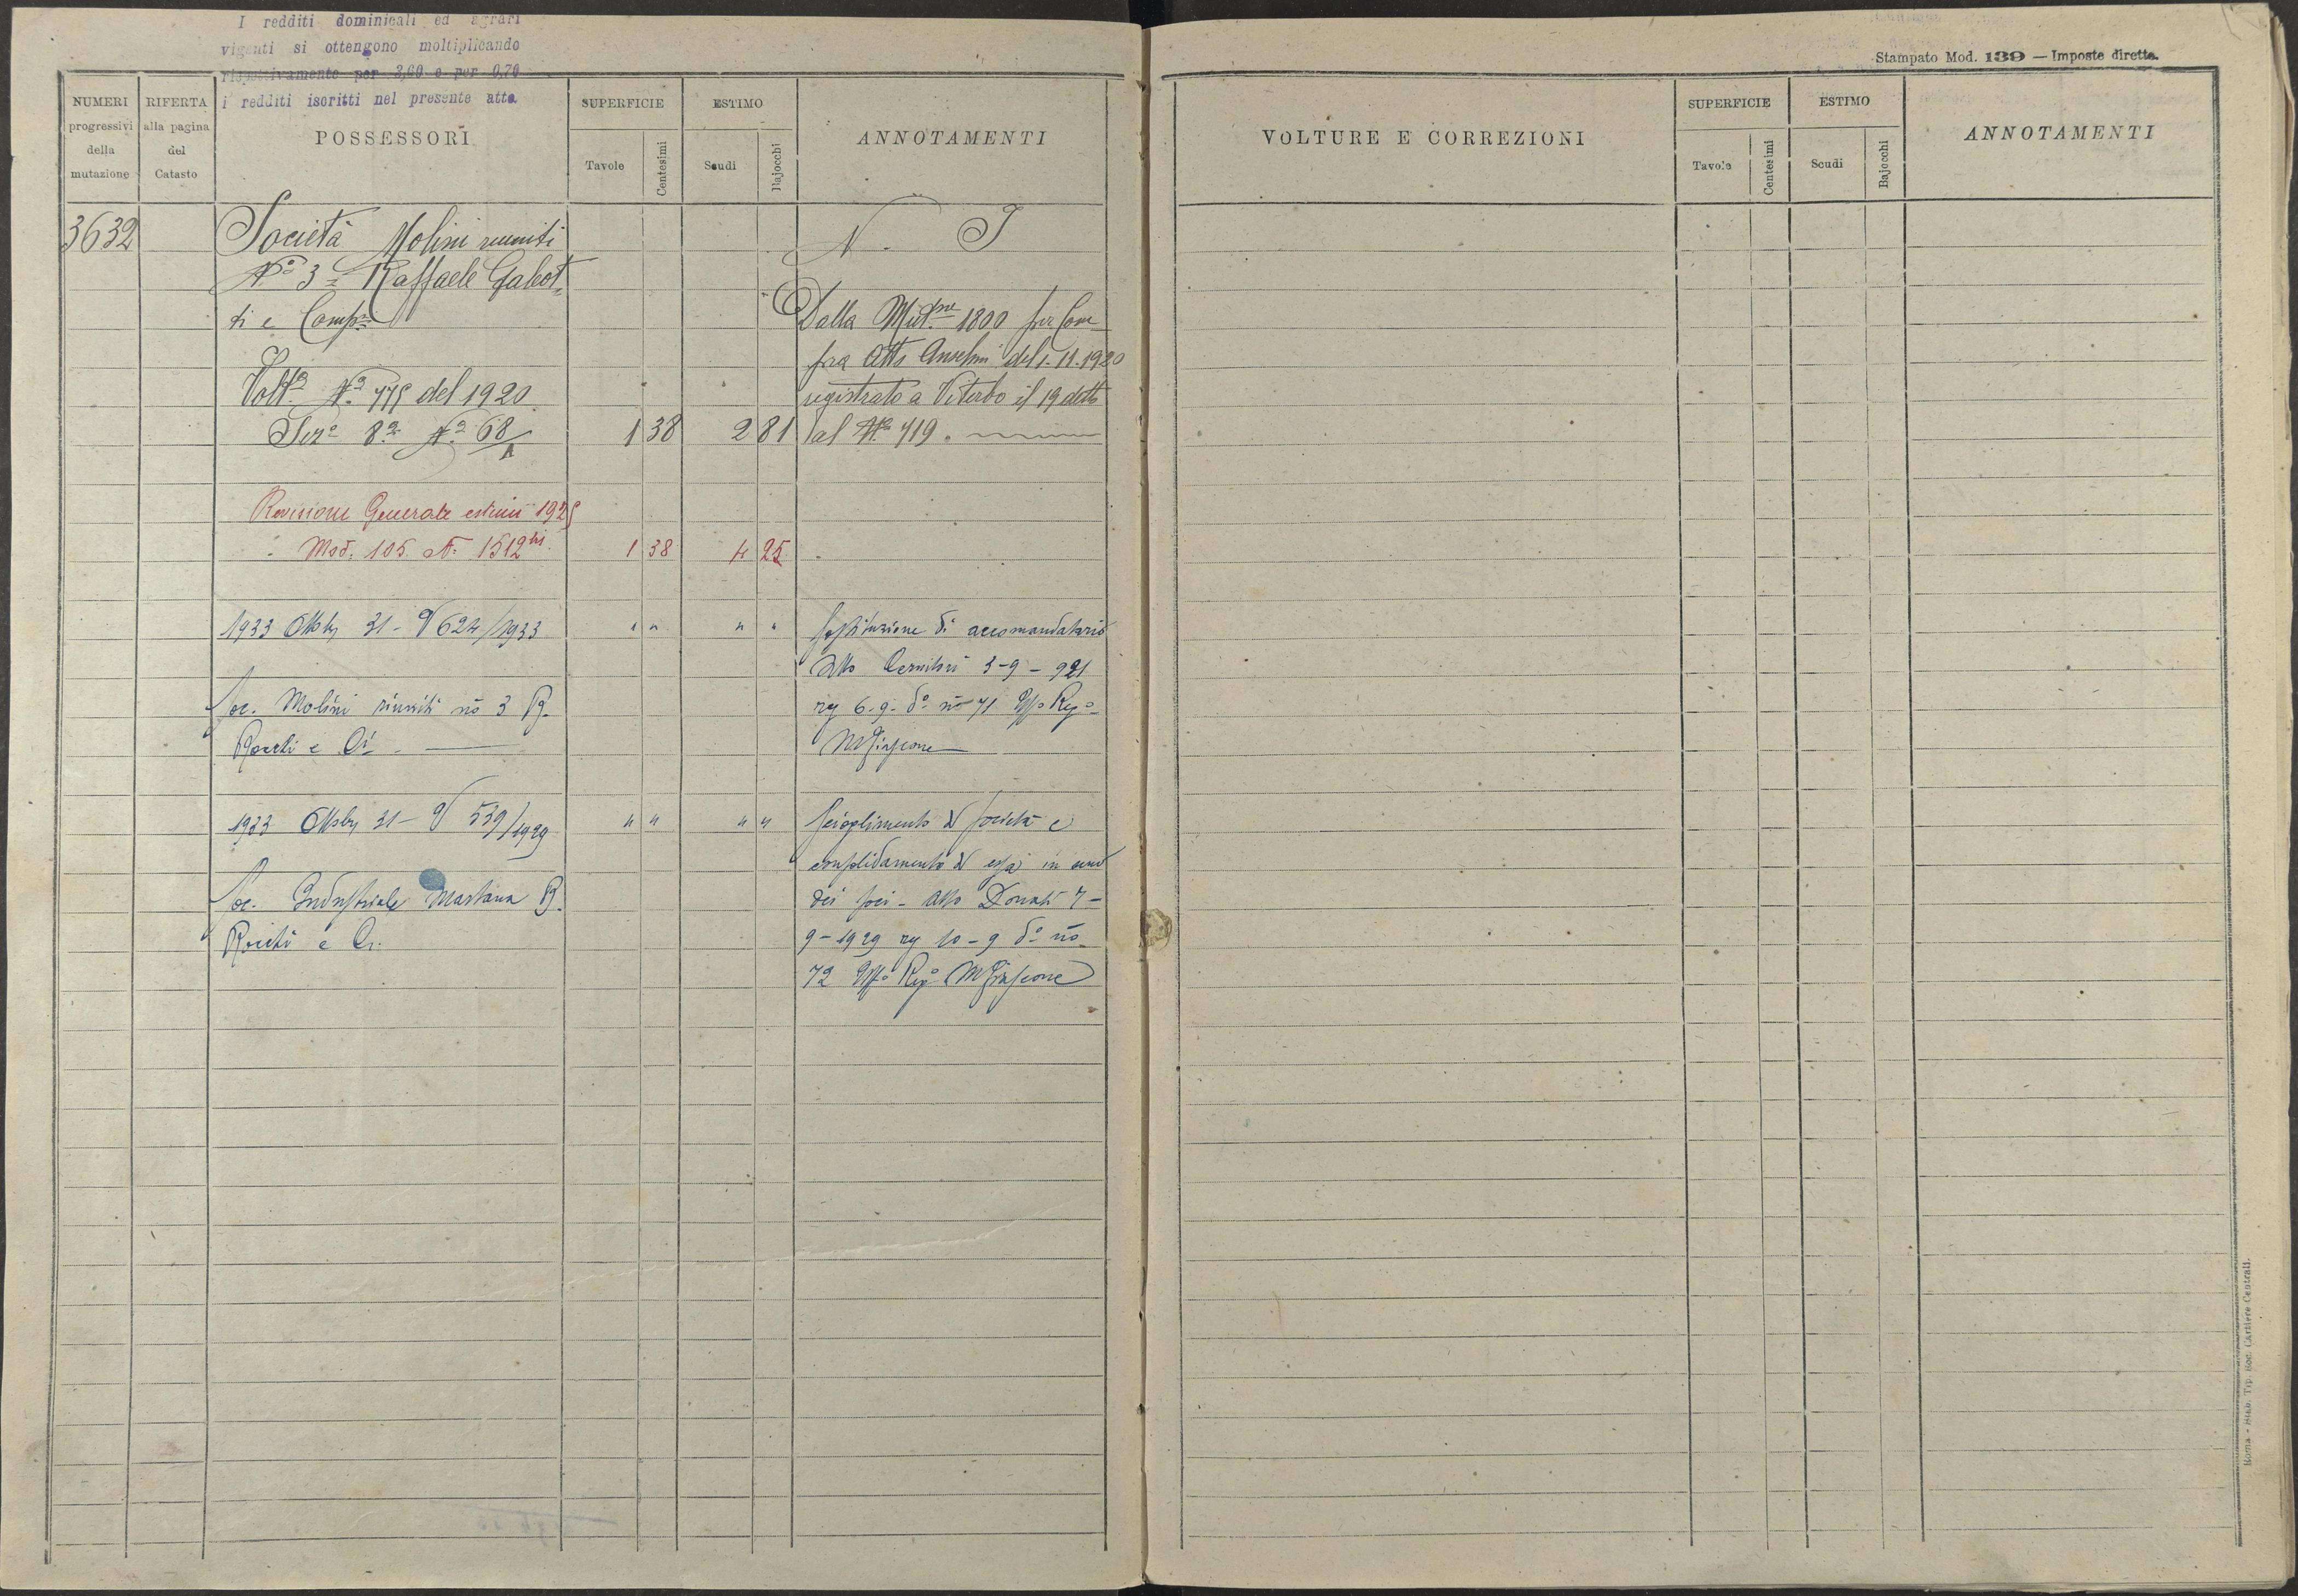 I redditi dominicali ed agrari
vigenti si ottengono moltiplicando
rispettivamente per 3,60 e per 0,70
i redditi iscritti nel presente atto.
Stampato Mod. 139 — Imposte dirette.
NUMERI progressivi della mutazione
RIFERTA alla pagina del Catasto
POSSESSORI
SUPERFICIE
Tavole
Centesimi
ESTIMO
Scudi
Bajocchi
ANNOTAMENTI
VOLTURE E CORREZIONI
SUPERFICIE
Tavole
Centesimi
ESTIMO
Scudi
Bajocchi
ANNOTAMENTI
3632
Società Molini riuniti
N° 3 = Raffaele Galeot=
ti e Comp.
Volt.a N.o 775 del 1920
Sez.e 8.a N.o 68/1 1 38 2 81
N. I
Dalla Mut.ne 1800 per Com
pra Atto Anselmi del 1.11.1920
registrato a Viterbo il 19 detto
al N.o 719.
Revisione Generale estimi 1925
Mod. 105 N. 1512 bis 1 38 4 25
1933 Ottobre 31 - 624/1933 " " " "
Soc. Molini riuniti no 3 R.
Rocchi e Ci
Sostituzione di accomandatario
Atto 3-9-921
reg 6-9- do no 71 Uffo Rego
Mfiascone
1933 Ottobre 31 - 539/1929 " " " "
Soc. Industriale Martana R.
Rocchi e Ci.
Scioglimento di società e
consolidamento di essa in uno
dei soci - Atto Donati 7-
9-1929 reg 10-9 do no
72 Uffo Rego Mfiascone
Roma - Stab. Tip. Soc. Cartiere Centrali.